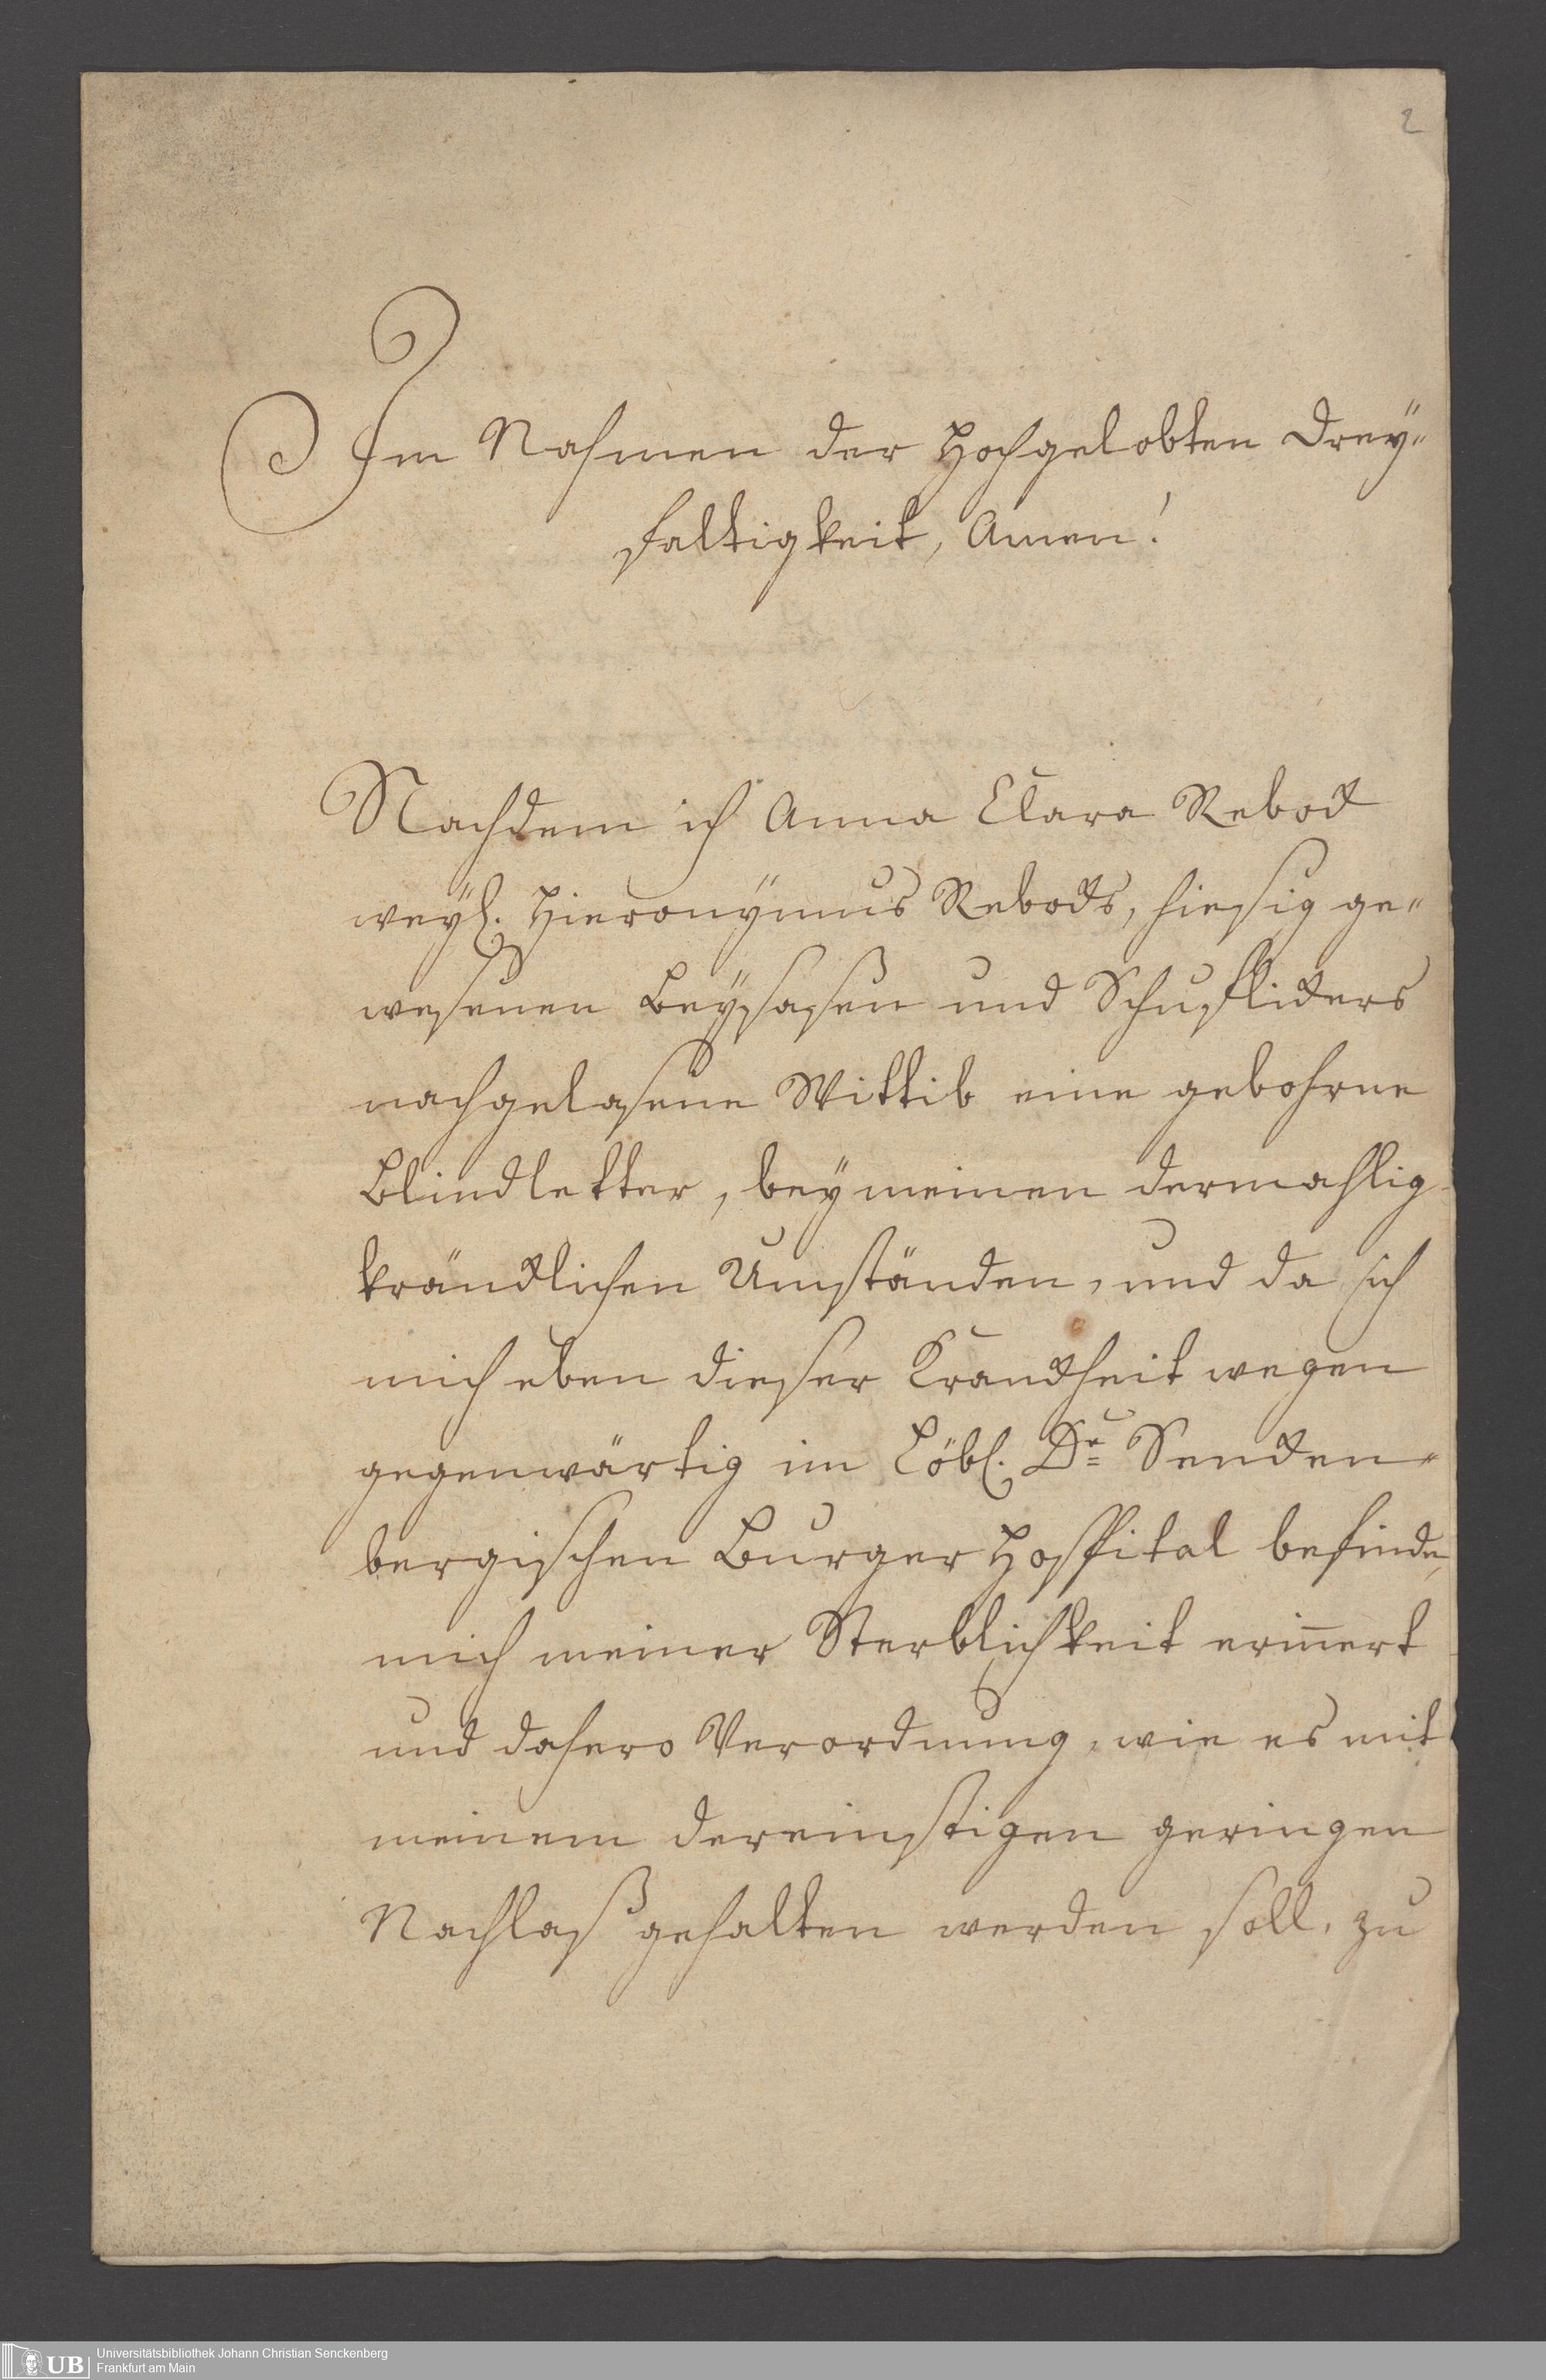 2
Im Nahmen der Hochgelobten Drey„
faltigkeit, Amen!
Nachdem ich Anna Clara Rebock
weyl. Hieronÿmus Rebocks, hiesig ge„
wesenen Beÿsasen und Schuflickers
nachgelasene Wittib eine gebohrne
Blindletter, beÿ meinen dermahlig
kräncklichen Umständen, und da ich
mich eben dieser Kranckheit wegen
gegenwärtig im Löbl. Dr. Sencken„
bergischen Burger Hospital befinde,
mich meiner Sterblichkeit erinert
und dahero Verordnung, wie es mit
meinem dereinstigen geringen
Nachlaß gehalten werden soll, zu
UB
Universitätsbibliothek Johann Christian Senckenberg
Frankfurt am Main